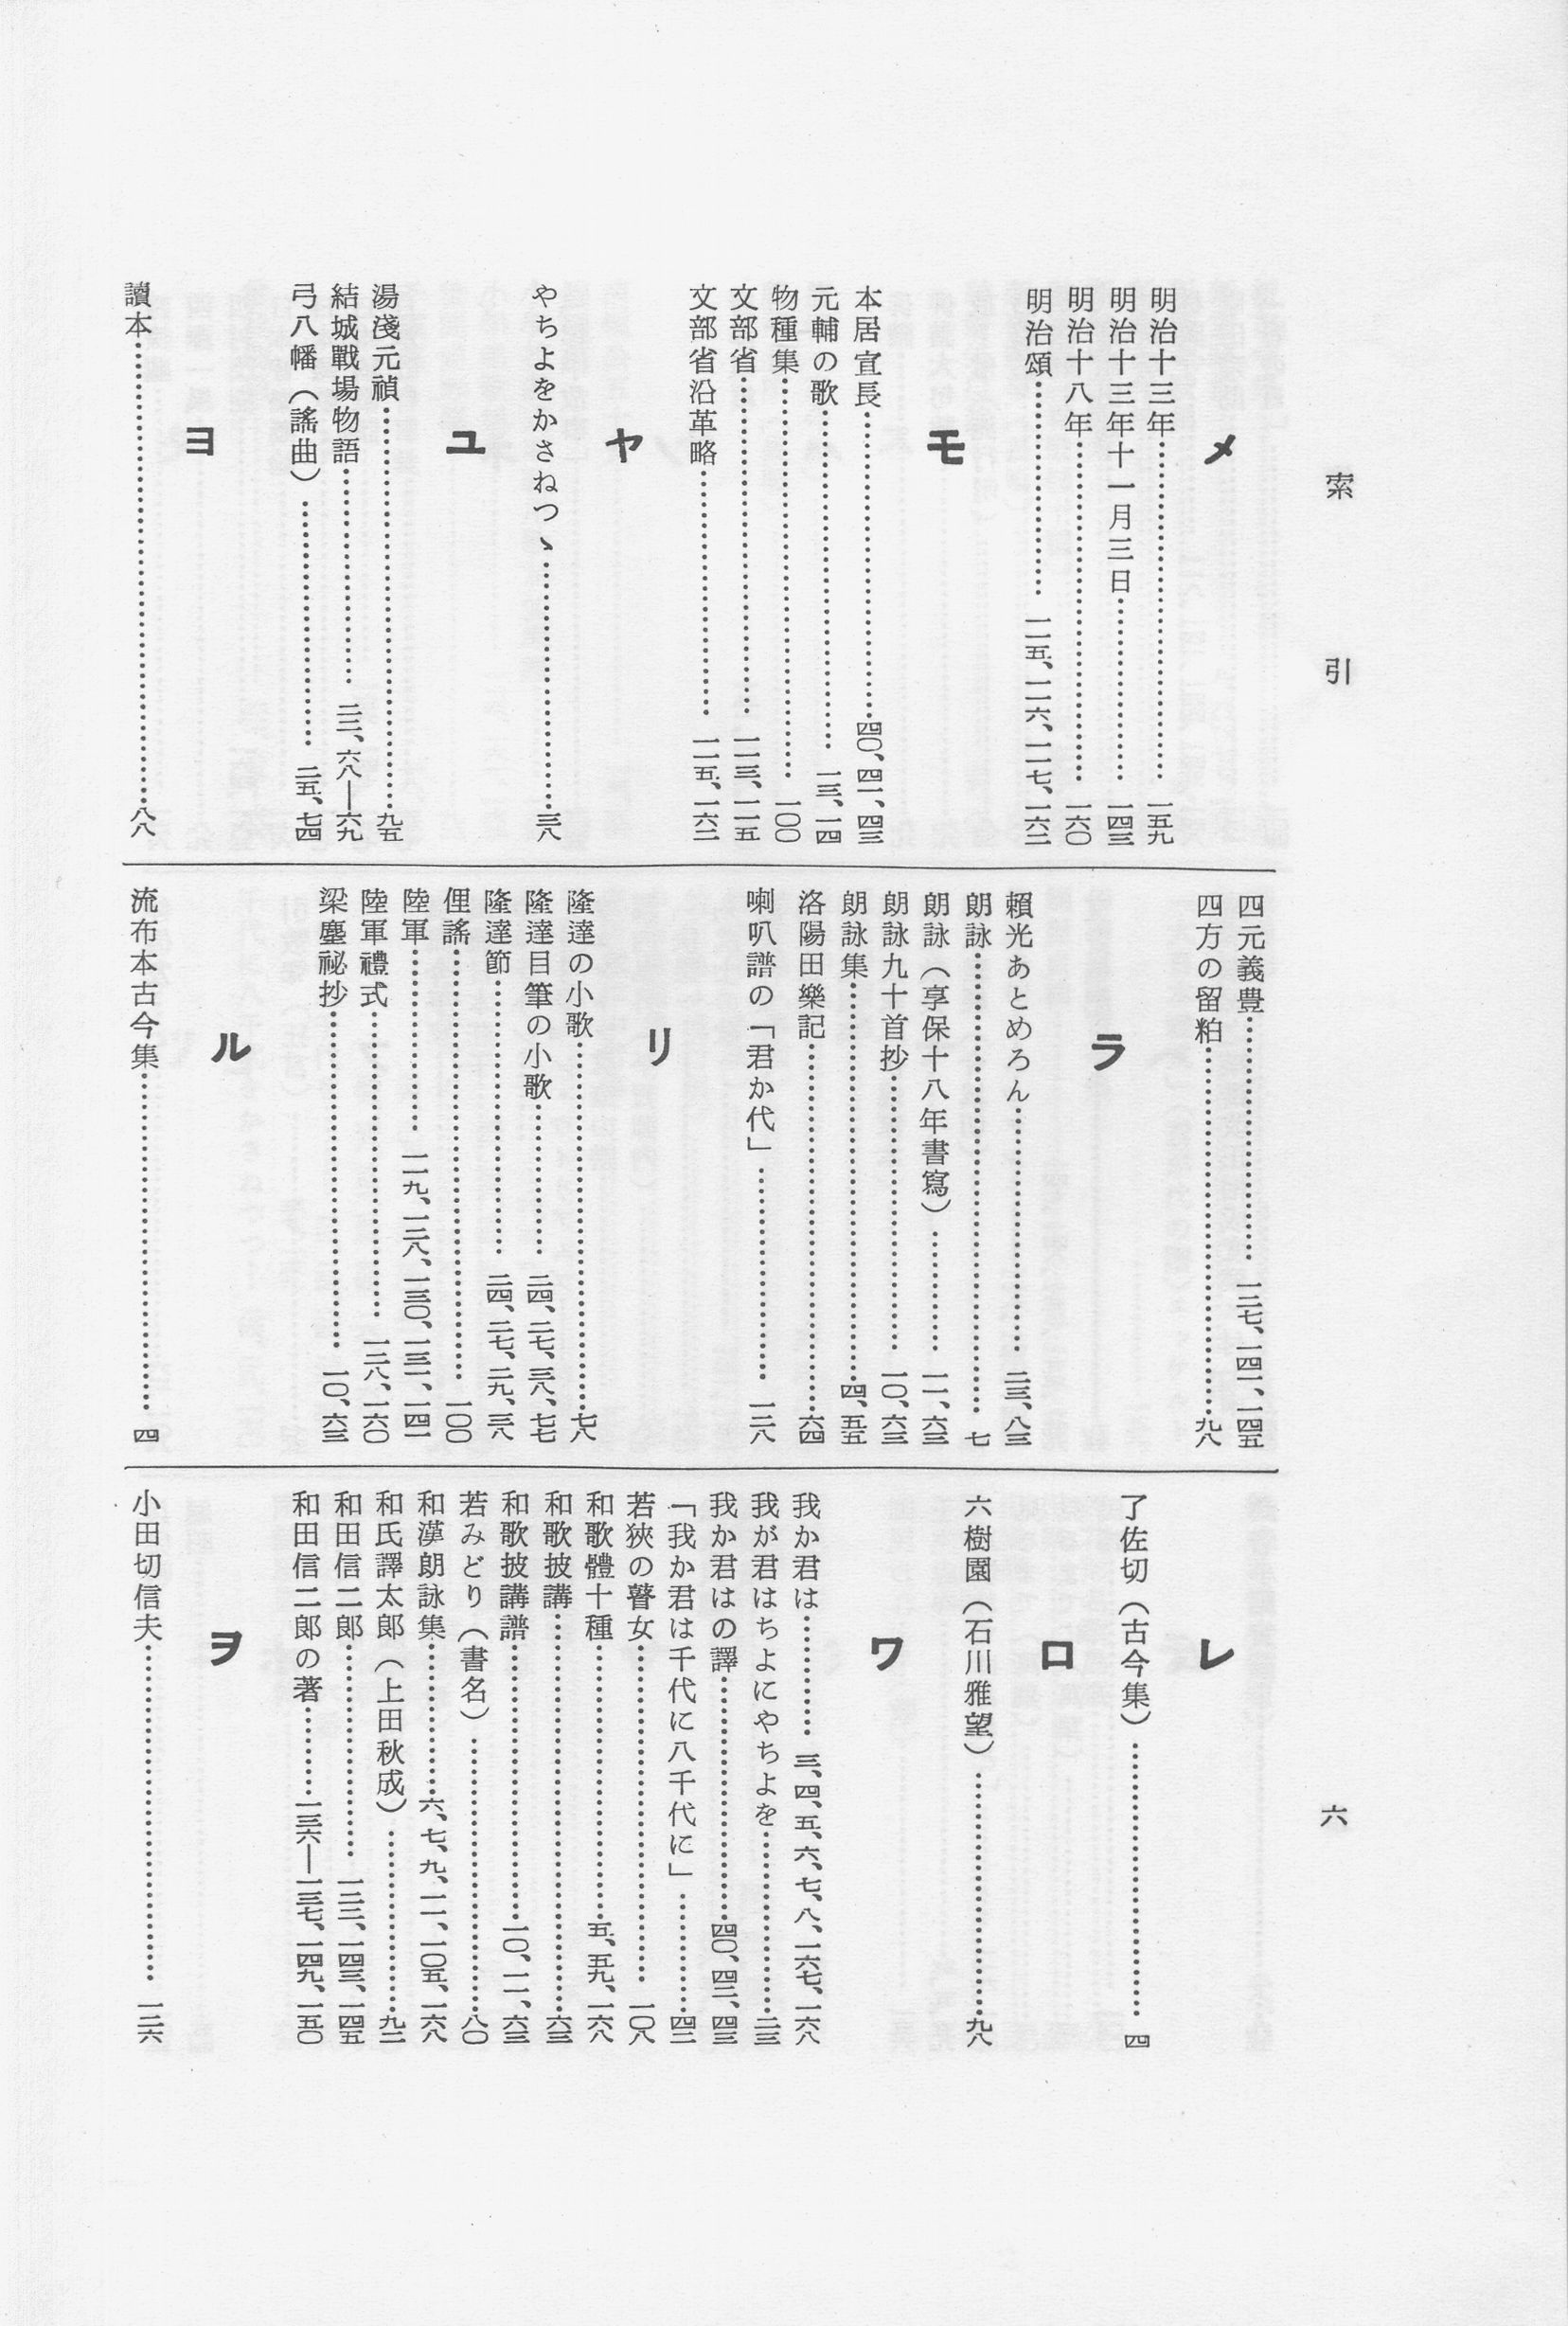 索引
六
メ
明治十三年……一五九
明治十三年十一月三日……一四三
明治十八年……一六〇
明治頌……一一五、一一六、一一七、一六二
モ
本居宣長……四〇、四一、四三
元輔の歌……一三、一四
物種集……一〇〇
文部省……一一三、一一五
文部省沿革略……一一五、一六二
ヤ
やちよをかさねつゝ……三八
ユ
湯淺元禎……九五
結城戰場物語……二三、六八―六九
弓八幡（謠曲）……二五、七四
ヨ
讀本……八八
四元義豊……一三七、一四一、一四五
四方の留粕……九八
ラ
賴光あとめろん……二三、八三
朗詠……七
朗詠（享保十八年書寫）……一一、六三
朗詠九十首抄……一〇、六三
朗詠集……四、五五
洛陽田樂記……六四
喇叭譜の「君か代」……一二八
リ
隆達の小歌……七八
隆達目筆の小歌……二四、二七、三八、七七
隆達節……二四、二七、二九、三八
俚謠……一〇〇
陸軍……一一九、一二八、一三〇、一三一、一四一
陸軍禮式……一二八、一六〇
梁塵祕抄……一〇、六三
ル
流布本古今集……四
レ
了佐切（古今集）……四
ロ
六樹園（石川雅望）……九八
ワ
我か君は……三、四、五、六、七、八、一六七、一六八
我が君はちよにやちよを……二三
我か君はの譯……四〇、四二、四三
「我か君は千代に八千代に」……四二
若狹の瞽女……一〇八
和歌體十種……五、五九、一六八
和歌披講……六三
和歌披講譜……一〇、一一、六三
若みどり（書名）……八〇
和漢朗詠集……六、七、九、一一、一〇五、一六八
和氏譯太郎（上田秋成）……九二
和田信二郎……一三三、一四三、一四五
和田信二郎の著……一三六―一三七、一四九、一五〇
ヲ
小田切信夫……一二六